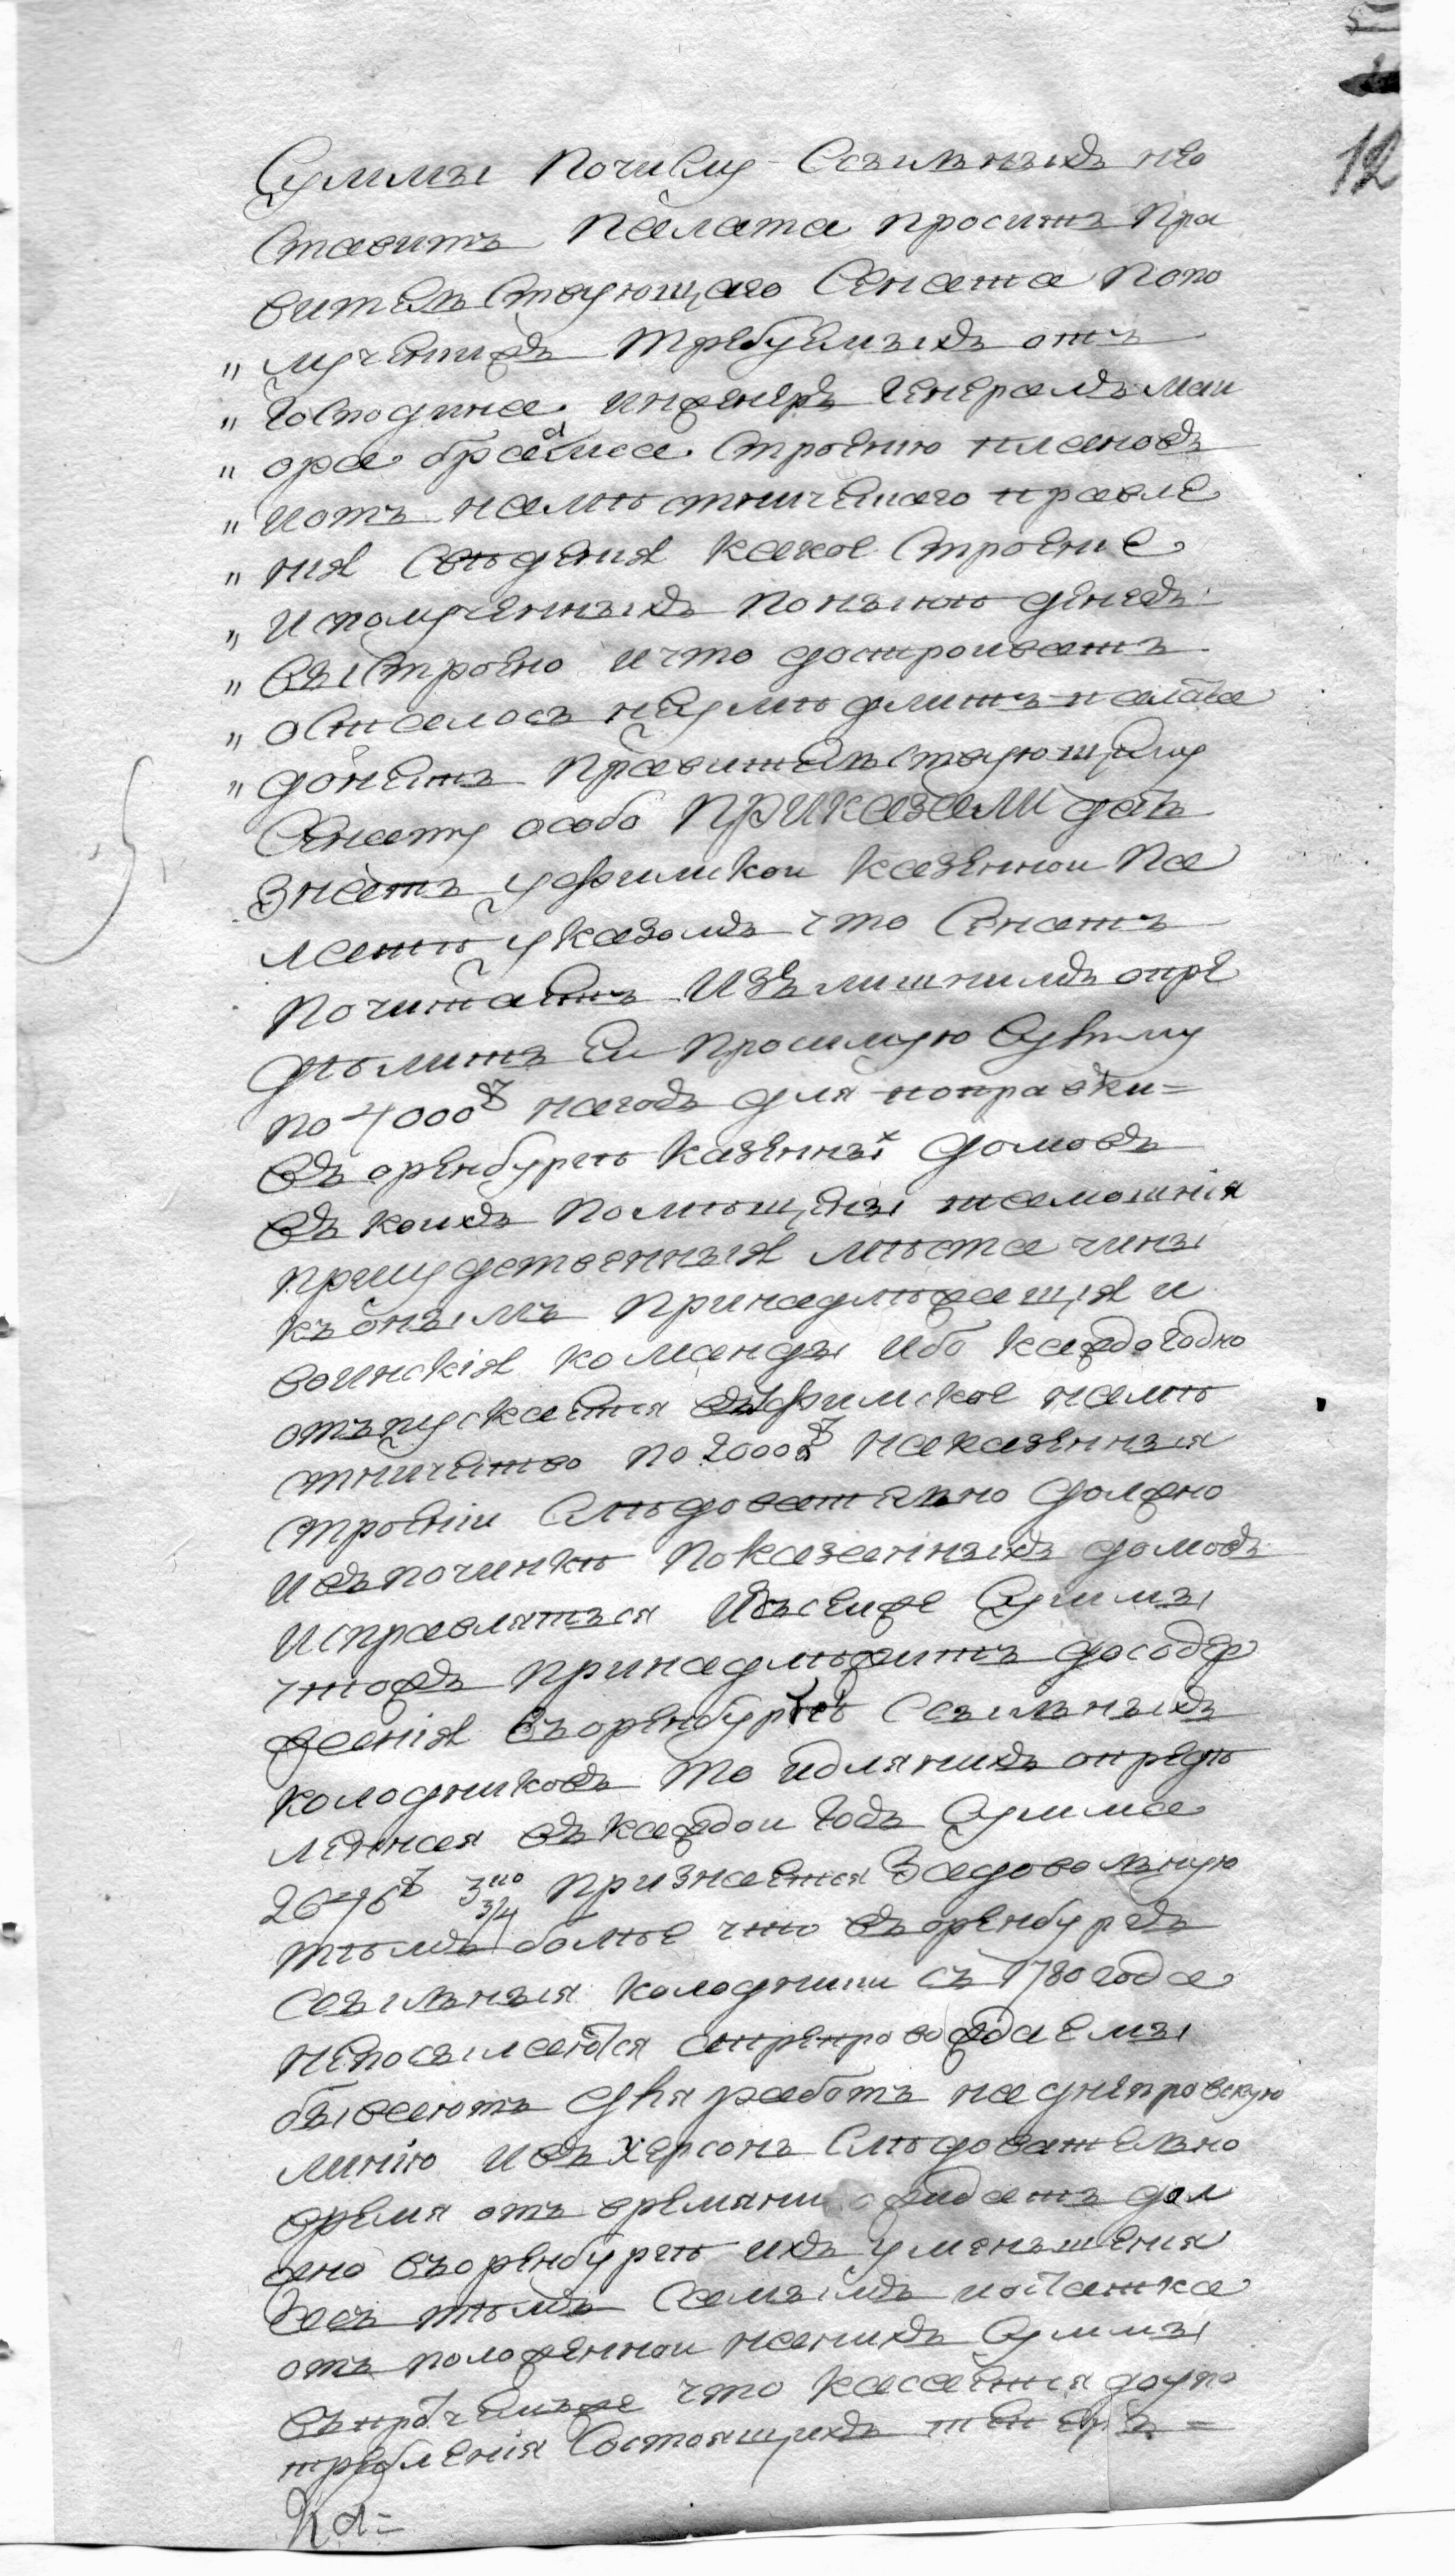 12
Суммы почислу ссыльныхъ не
ставитъ палата проситъ пра
вительствующаго Сената попо
„ лученiихъ требуемыхъ отъ
„ Господина инженеръ генералъ маи
„ ора брамса строению плановъ
„ иотъ наместническаго правле
„ нiя сведения какое строение
„ исполученныхъ поныне денегъ
„ выстроено ичто достроиватъ
„ осталось неумедлитъ палата
„ донеитъ Правительствующему
Сенату особо приказали дать
знать уфимскои казеннои па
лате указомъ что Сенатъ
почитаетъ излишнимъ опре
делить еи просимую сумму
по 4000 р нагодъ для поправки=
въ оренбурге казенных домовъ
въ коихъ помещены тамошнiя
присудственныя места чины
къ онымъ принадлежащiя и
воинскiя команды ибо каждогодно
отъпускается въуфимское наме
стничество по 2000 р наказенныя
строенiи следовательно должно
ивъпочинке показанныхъ домовъ
исправляться изъсеиже суммы
чтожъ принадлежитъ досодер
жанiя въоренбурге ссыльныхъ
колодниковъ то идляних опреде
ленная въкаждои годъ сумма
2676 р 3 3/4 признается задовольную
темъ более что въоренбургъ
ссыльныя колодники съ 1780 года
непосылаются апрепровождаемы
бываютъ для работъ наднепровскую
линiю ивъ херсонъ следовательно
время отъ времяни ожидать дол
жно въоренбурге ихъ уменьшения
асъ темъ самымъ иостатка
отъ положеннои наних суммы
въпротчемъже что касается доупо
требленiя состоящихъ теперь=
ка=